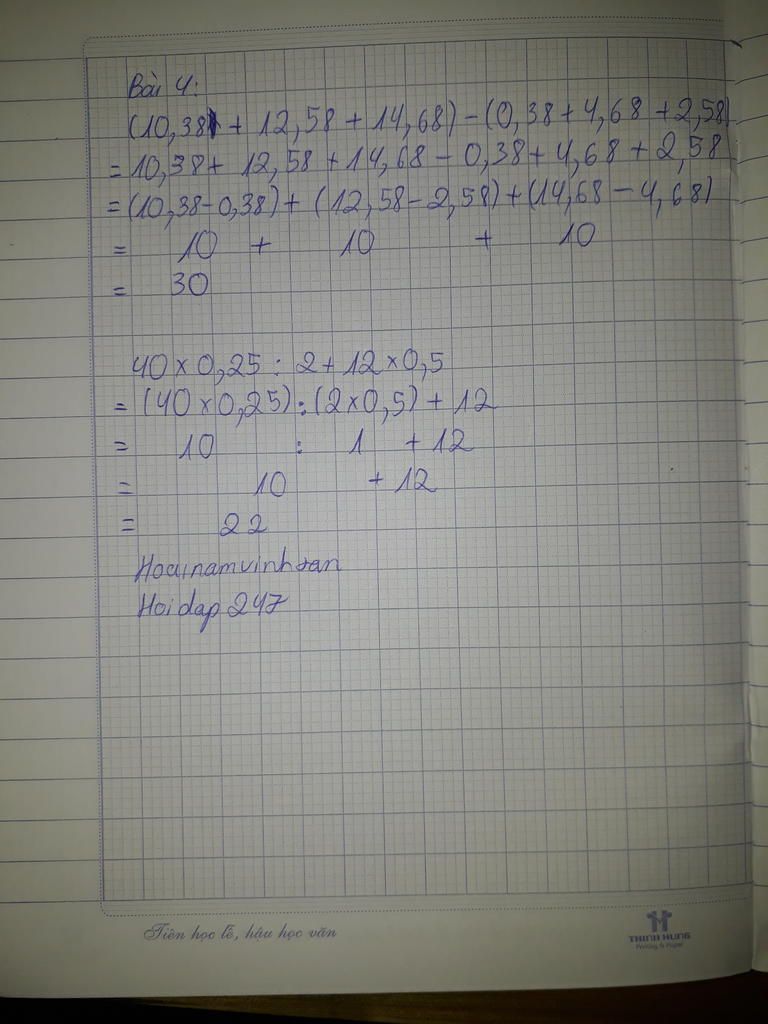 Bài 4:
(10,38 + 12,58 + 14,68) - (0,38 + 4,68 + 2,58)
= 10,38 + 12,58 + 14,68 - 0,38 + 4,68 + 2,58
= (10,38 - 0,38) + (12,58 - 2,58) + (14,68 - 4,68)
= 10 + 10 + 10
= 30
40 x 0,25 : 2 + 12 x 0,5
= (40 x 0,25) : (2 x 0,5) + 12
= 10 : 1 + 12
= 10 + 12
= 22
Hoainamvinhtan
Hoidap 247
Tiên học lễ, hậu học văn
THINH HUNG
Printing & Paper